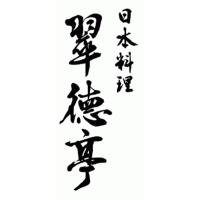 日本料理
翠徳亭